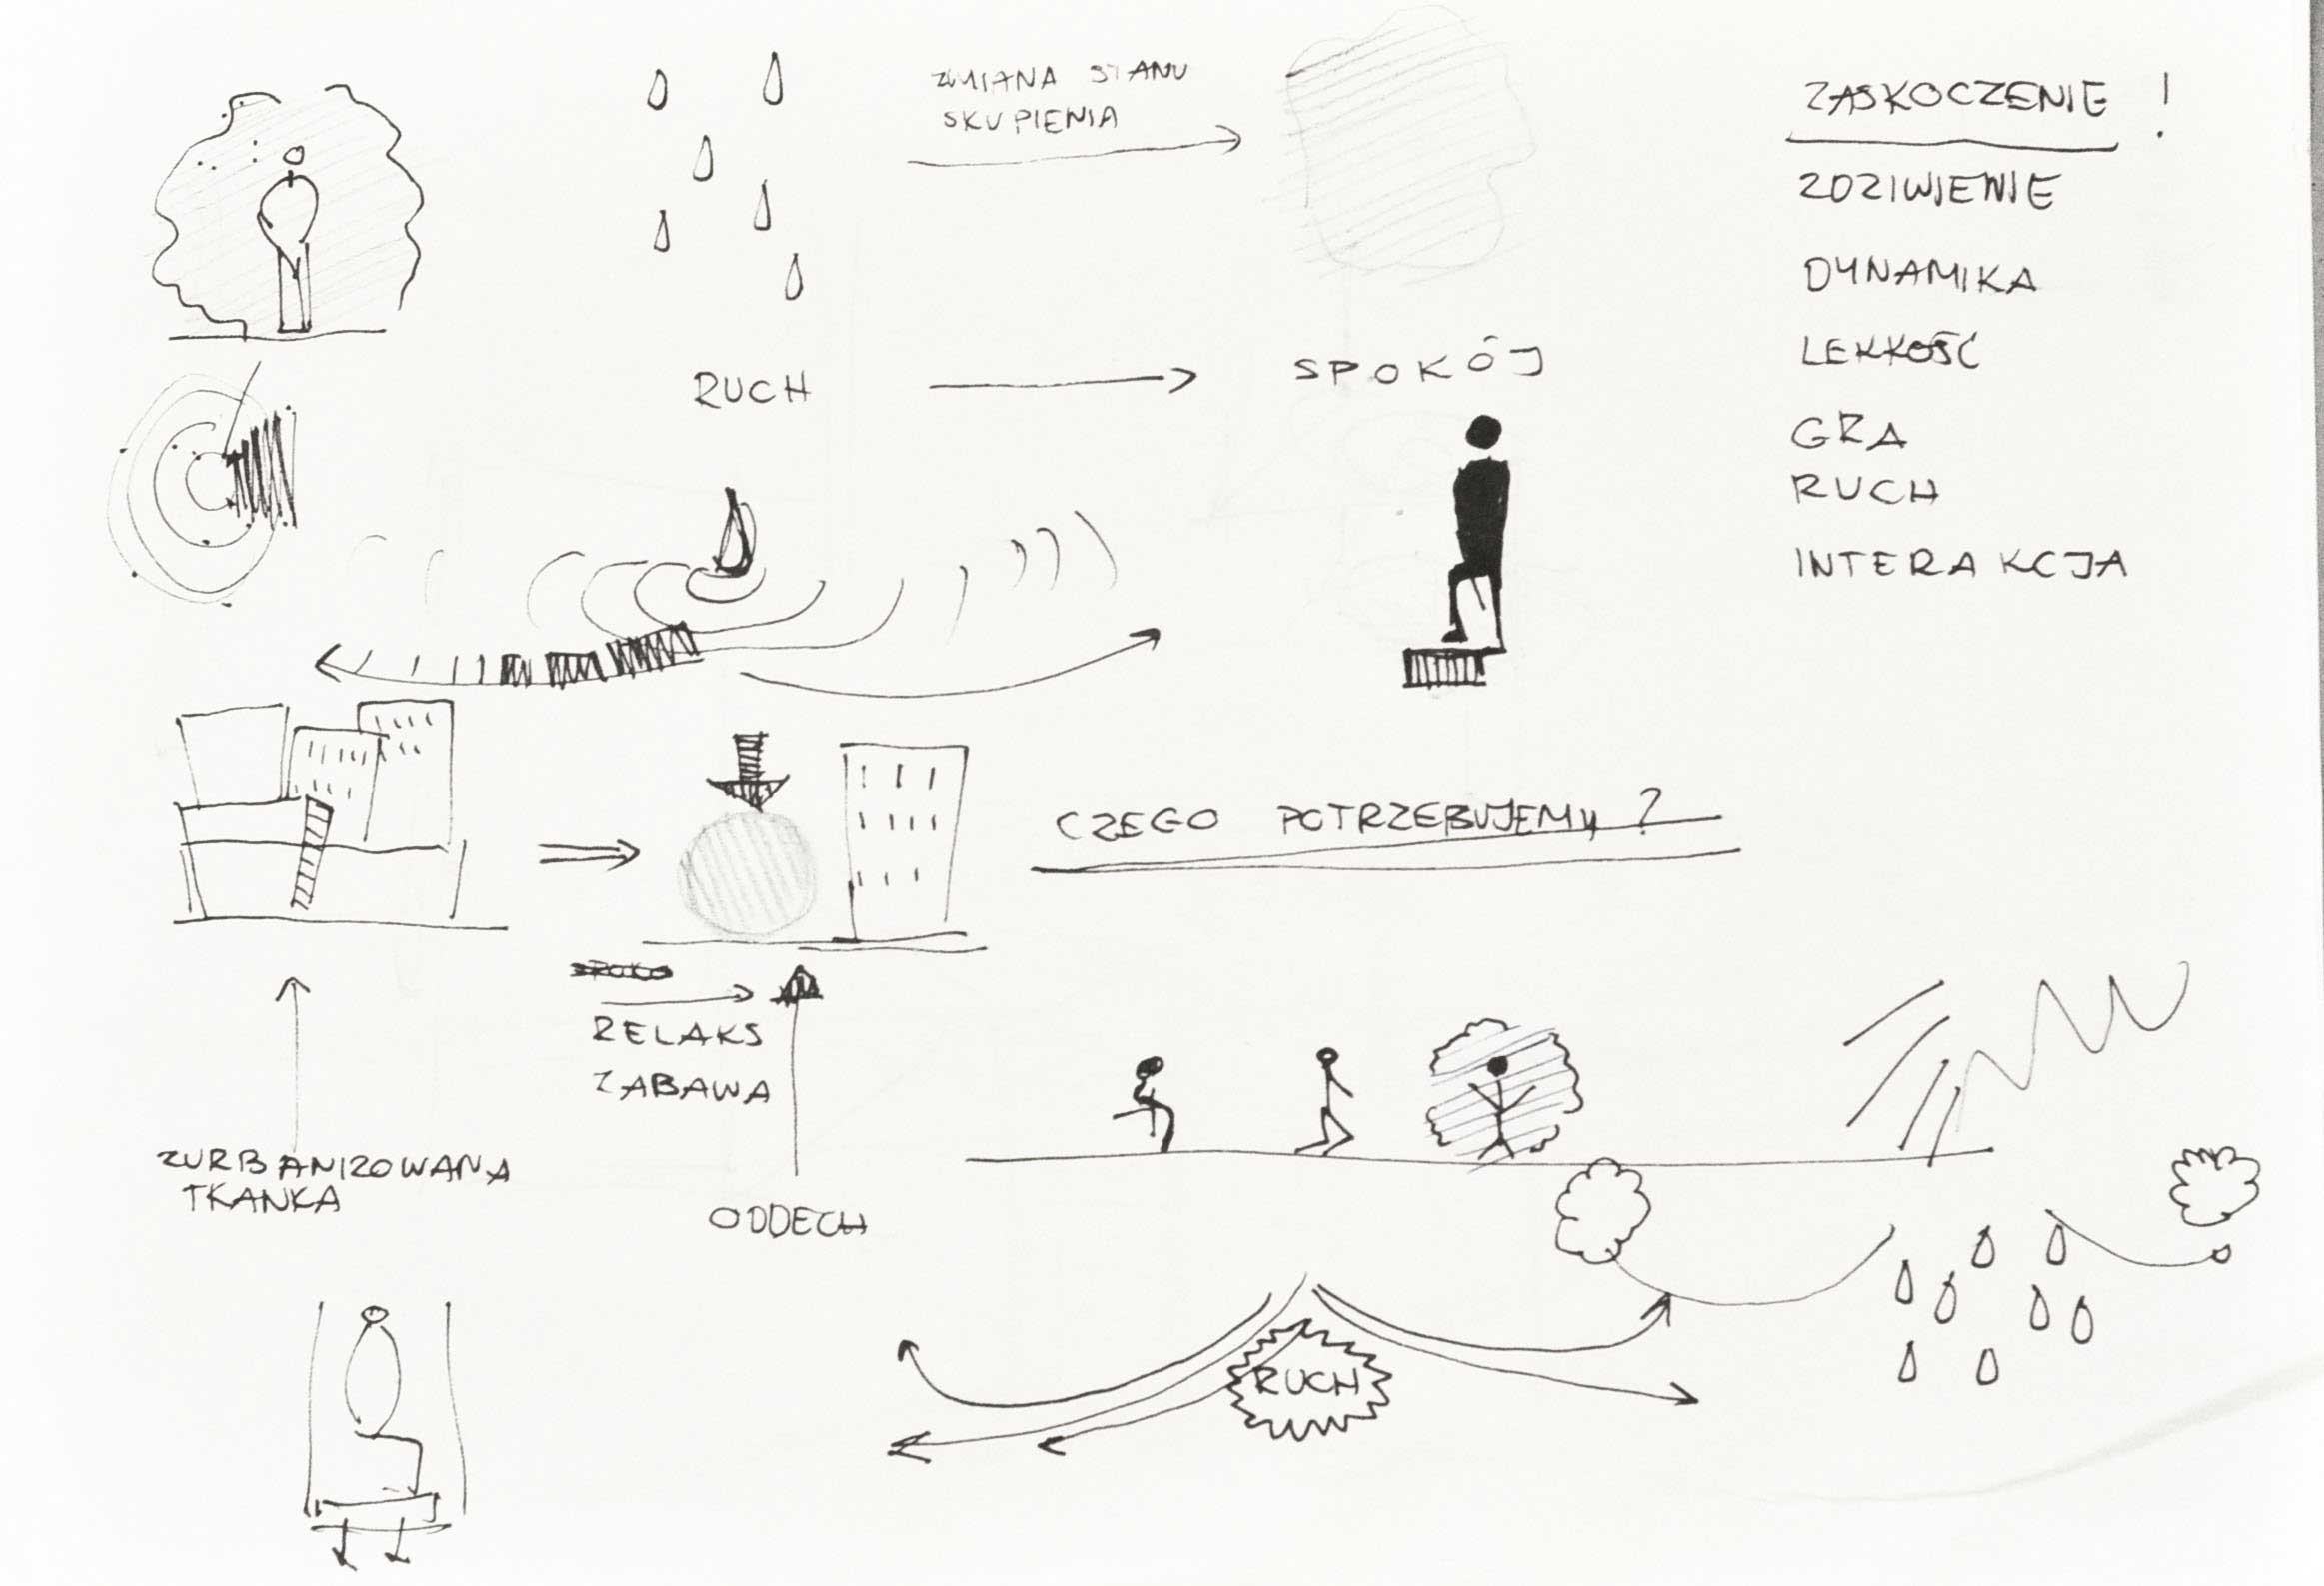 ZMIANA STANU
SKUPIENIA
RUCH
SPOKÓJ
ZASKOCZENIE !
ZDZIWIENIE
DYNAMIKA
LEKKOŚĆ
GRA
RUCH
INTERAKCJA
CZEGO POTRZEBUJEMY ?
RELAKS
ZABAWA
ZURBANIZOWANA
TKANKA
ODDECH
RUCH